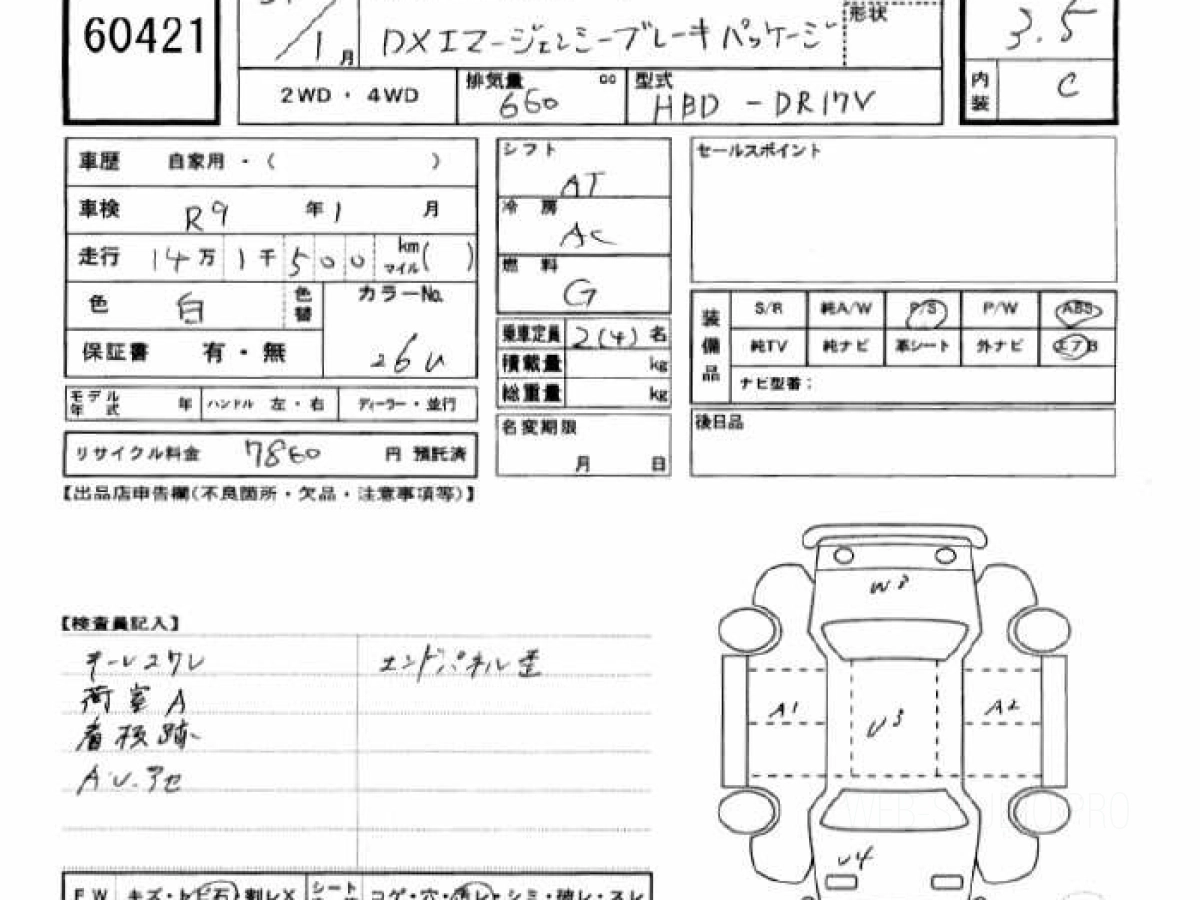 60421
1月
DXエマージェンシーブレーキパッケージ
形状
3.5
2WD・4WD
排気量 cc
660
型式
HBD-DR17V
内装 C
車歴 自家用・( )
車検 R9 年 1 月
走行 14万 1千 500 km マイル( )
色 白 色替
カラーNo.
26U
保証書 有・無
モデル年式 年 ハンドル 左・右 ディーラー・並行
リサイクル料金 7860 円 預託済
シフト
AT
冷房
AC
燃料
G
乗車定員 2(4) 名
積載量 kg
総重量 kg
名変期限
月 日
セールスポイント
装備品
S/R 純A/W P/S P/W ABS
純TV 純ナビ 革シート 外ナビ エアB
ナビ型番:
後日品
【出品店申告欄(不良箇所・欠品・注意事項等)】
【検査員記入】
キーレスワレ
エンドパネル歪
荷室A
看板跡
A・U・アセ
W3
A1
U3
A2
U4
WEB-S PRO
FW キズ・トビ石・割レX シート コゲ・穴・汚レ・シミ・破レ・スレ